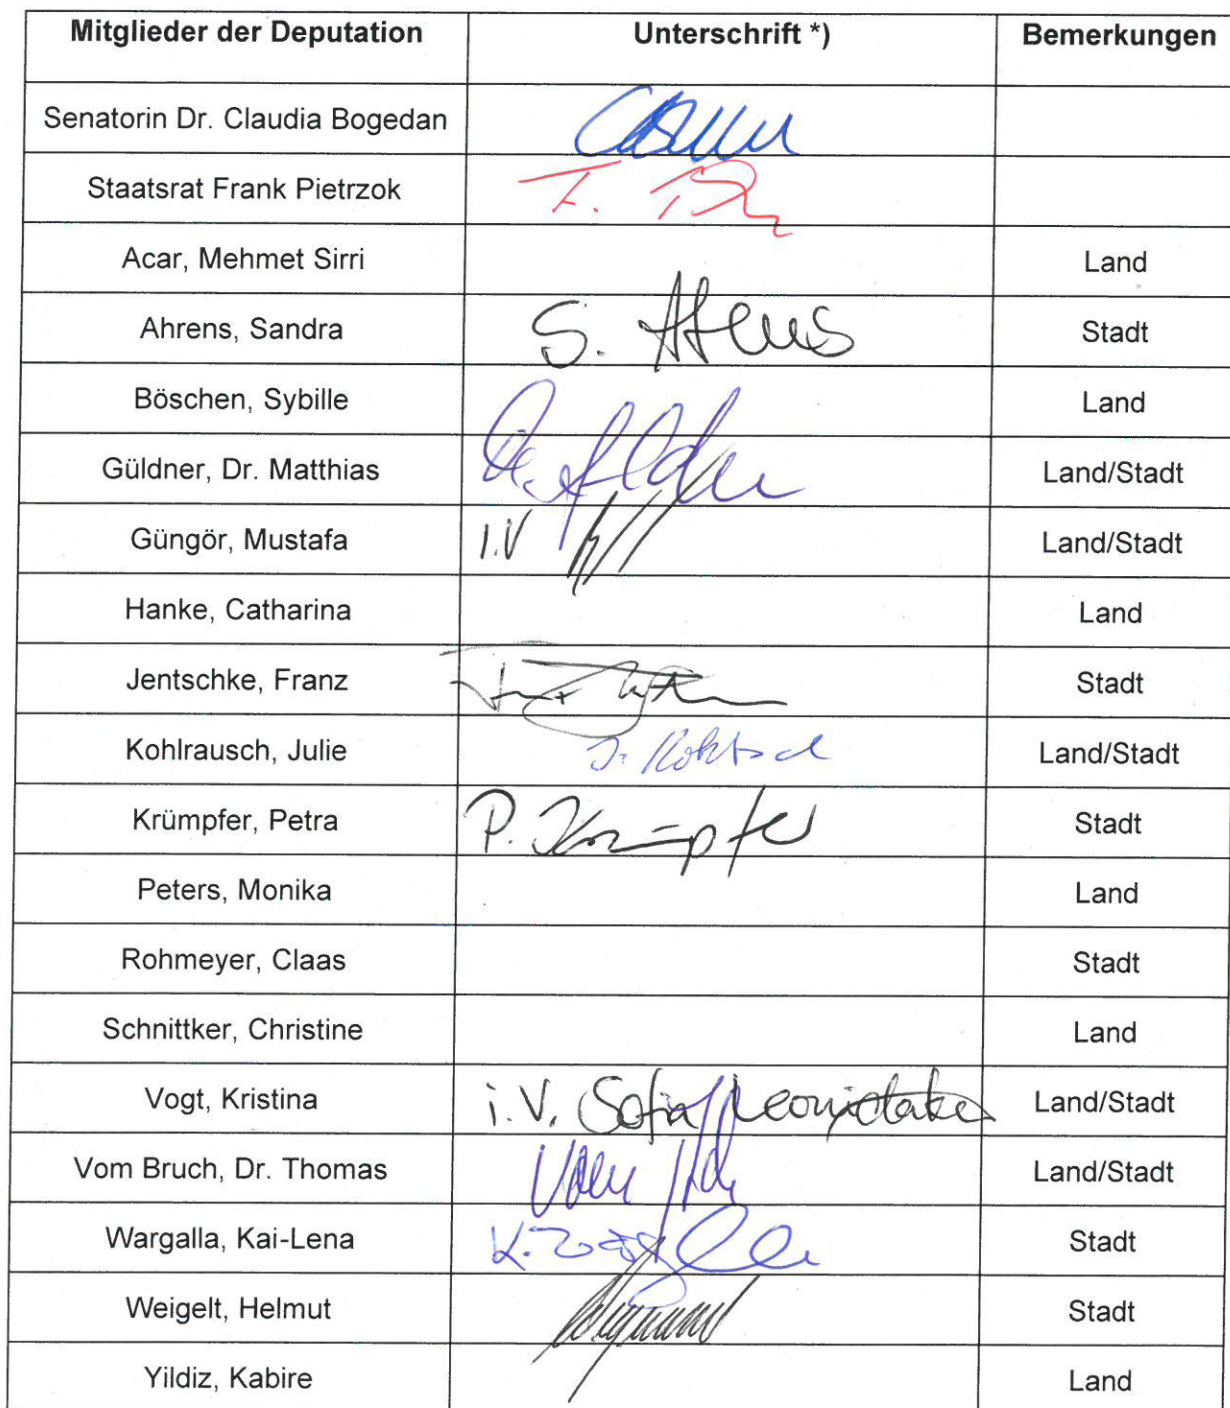 Mitglieder der Deputation Unterschrift *) Bemerkungen
Senatorin Dr. Claudia Bogedan
Staatsrat Frank Pietrzok F.
Acar, Mehmet Sirri Land
Ahrens, Sandra S. Ahrens Stadt
Böschen, Sybille Land
Güldner, Dr. Matthias Land/Stadt
Güngör, Mustafa I.V Land/Stadt
Hanke, Catharina Land
Jentschke, Franz Stadt
Kohlrausch, Julie J. Land/Stadt
Krümpfer, Petra P. Krümpfer Stadt
Peters, Monika Land
Rohmeyer, Claas Stadt
Schnittker, Christine Land
Vogt, Kristina i.V. Sofia Leonidakis Land/Stadt
Vom Bruch, Dr. Thomas Land/Stadt
Wargalla, Kai-Lena K. Stadt
Weigelt, Helmut Stadt
Yildiz, Kabire Land